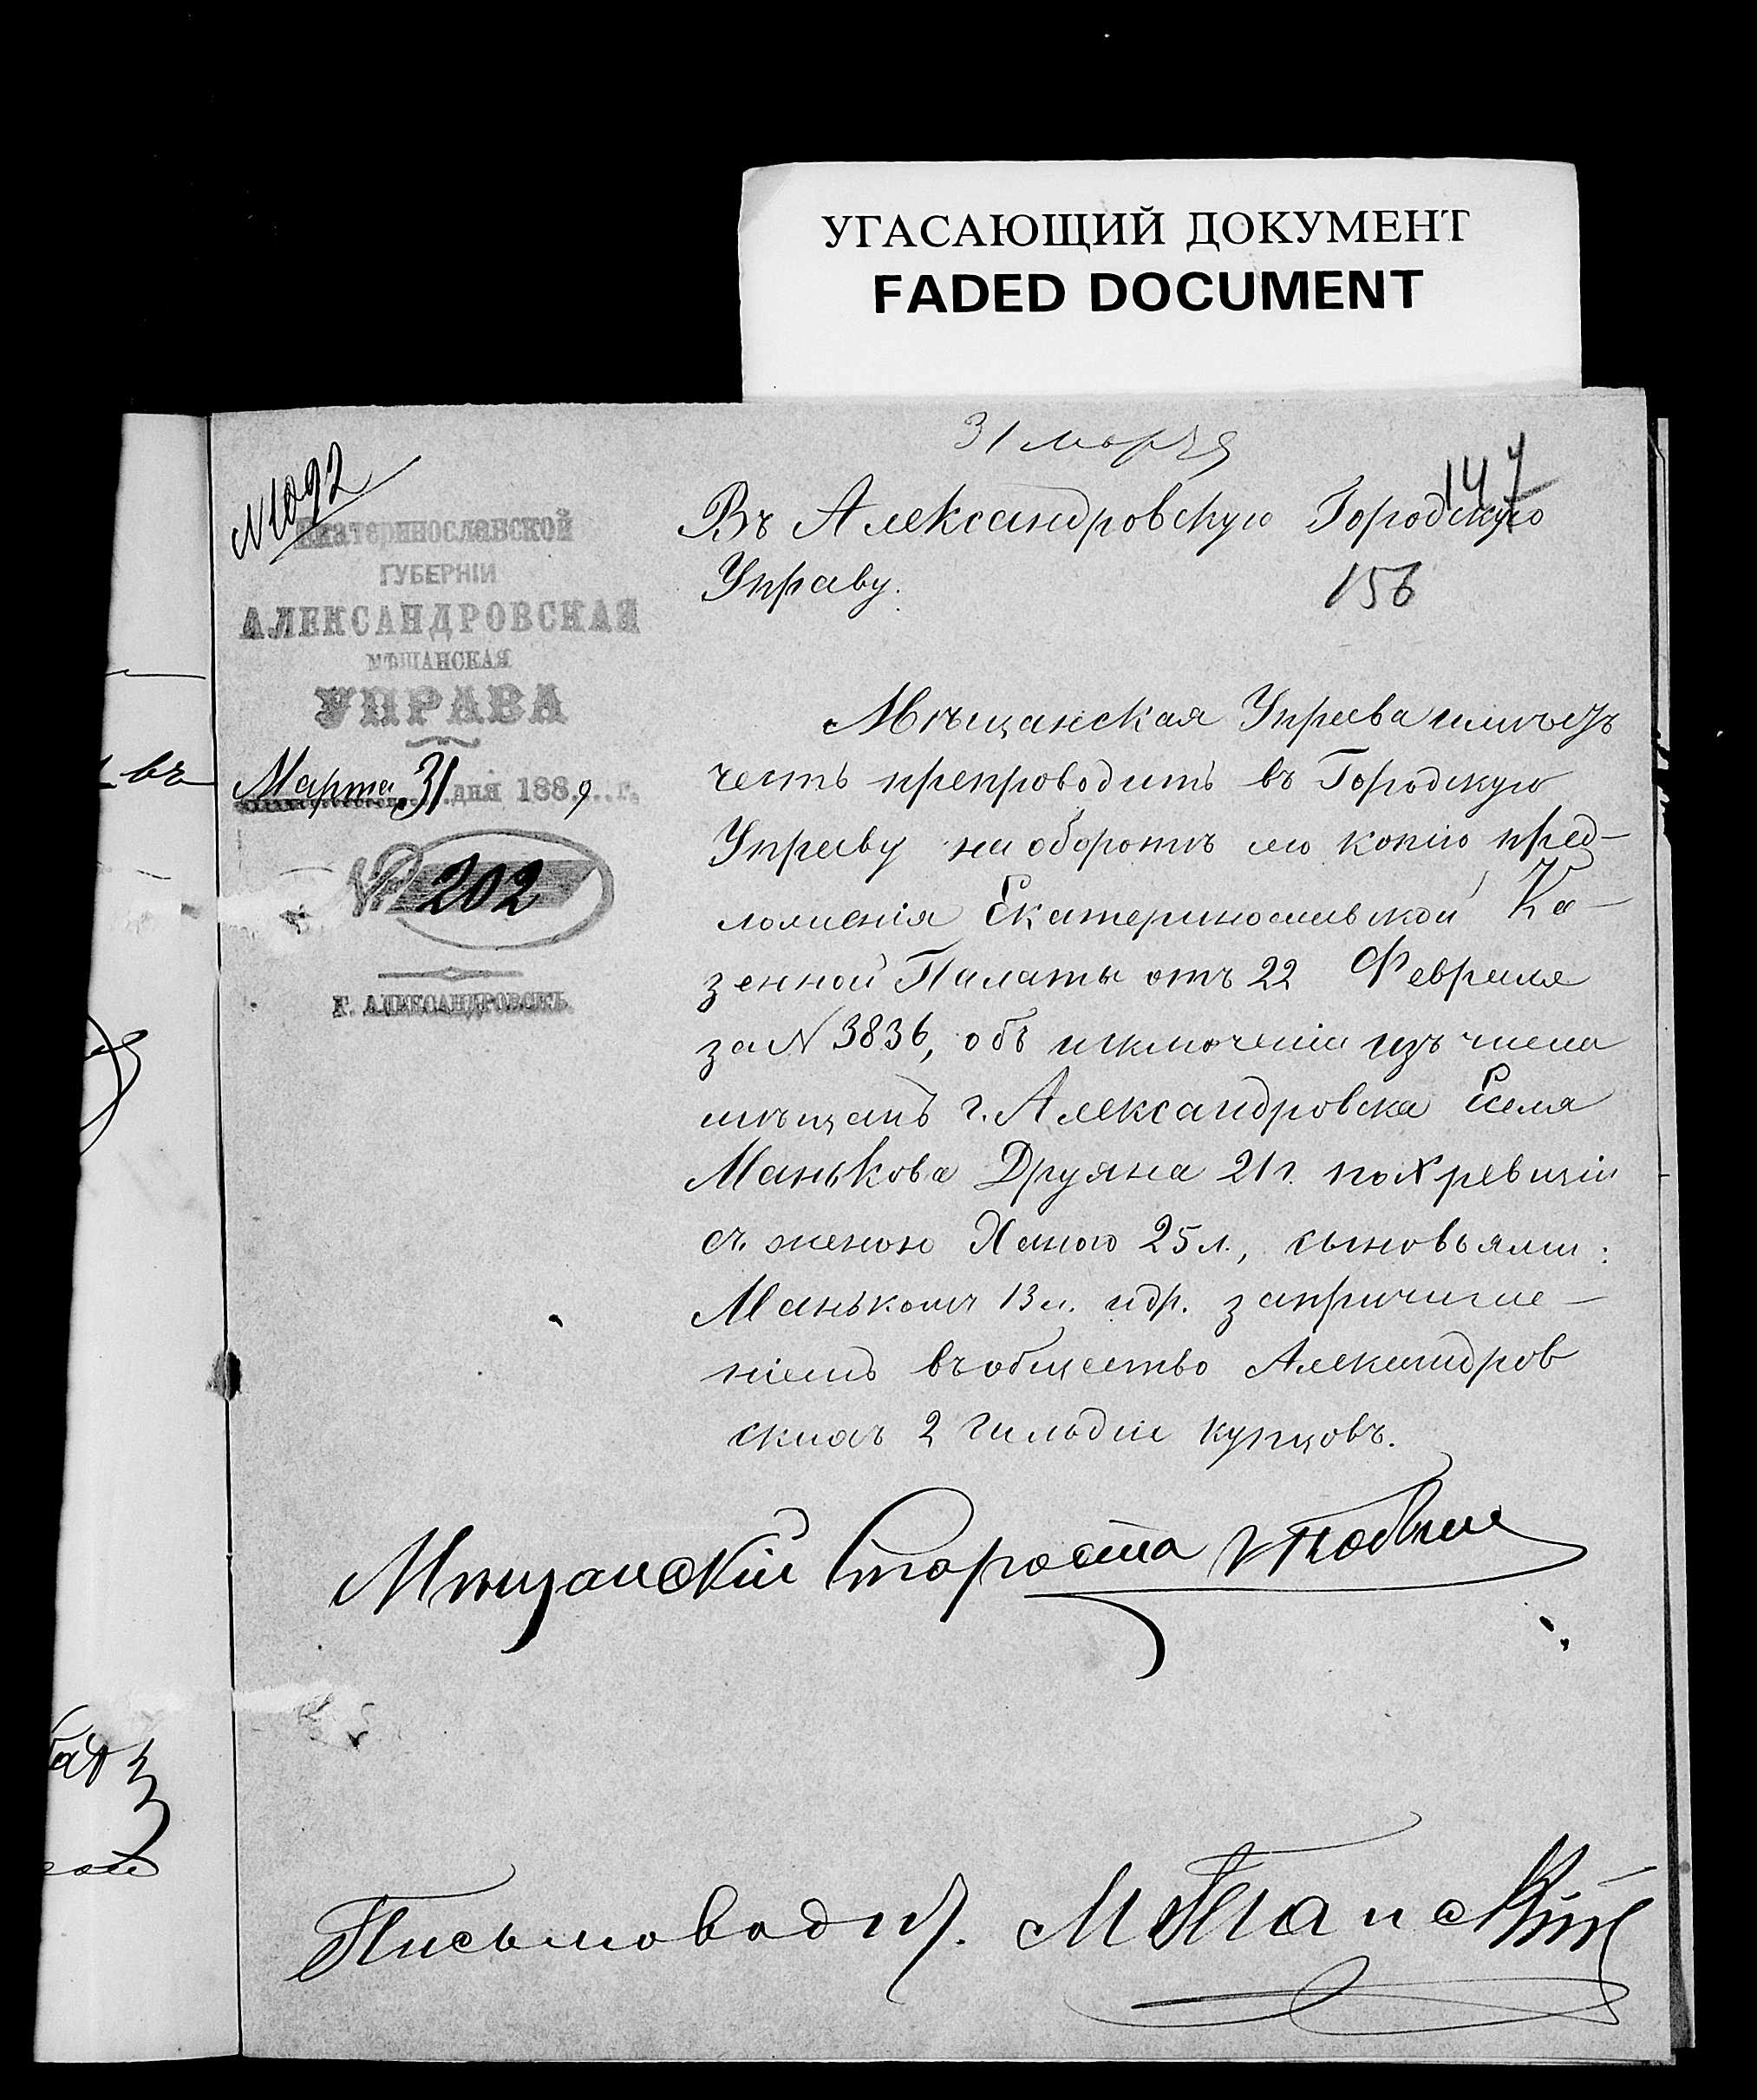 УГАСАЮЩИЙ ДОКУМЕНТ
FADED DOCUMENT
31 марта
№ 1092
147
156
Екатеринославской
ГУБЕРНІИ
АЛЕКСАНДРОВСКАЯ
МѢЩАНСКАЯ
УПРАВА
Марта 31 дня 1889 г.
№ 202
Г. АЛЕКСАНДРОВСКЪ.
Въ Александровскую Городскую
Управу.
Мѣщанская Управа имѣетъ
честь препроводить въ Городскую
Управу на оборотѣ сего копію пред-
ложенія Екатеринославской Ка-
зенной Палаты отъ 22 Февраля
за N 3836, объ исключеніи изъ числа
мѣщанъ г. Александровска Еселя
Манькова Друяна 21 г. по X ревизіи
съ женою Ханою 25 л., сыновьями:
Манькомъ 13 л. и др. за причисле-
ніемъ въ общество Александров
скихъ 2 гильдіи купцовъ.
Мѣщанскій Староста
Письмоводит.
въ